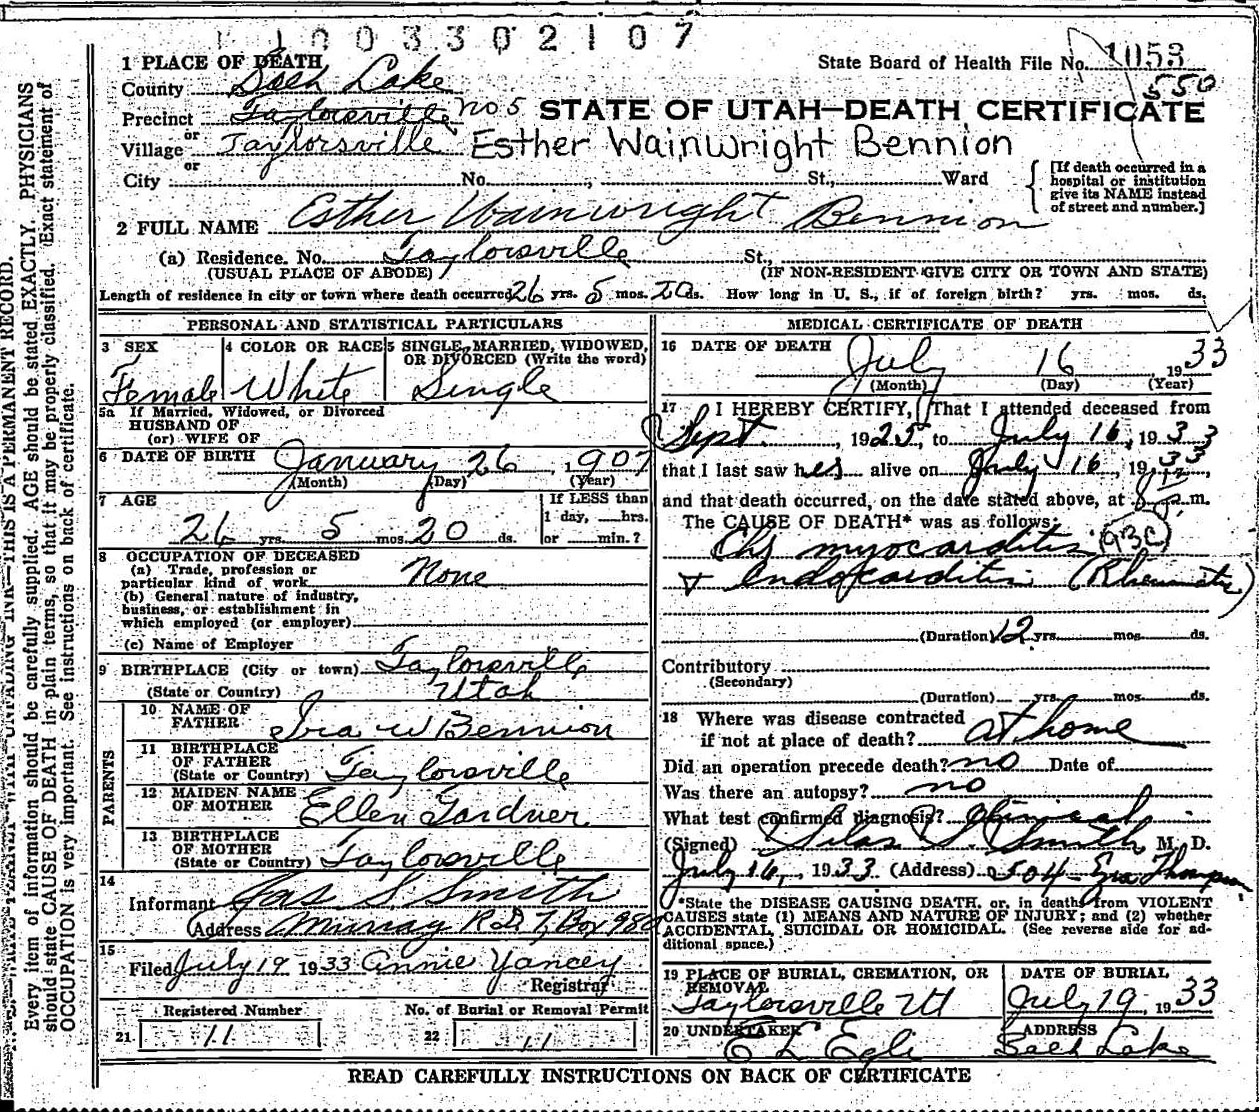 1003302107
1 PLACE OF DEATH
State Board of Health File No. 1053
County Salt Lake
550
Precinct Taylorsville no 5
STATE OF UTAH—DEATH CERTIFICATE
or
Village Taylorsville
Esther Wainwright Bennion
or
City No. , St., Ward
[If death occurred in a hospital or institution give its NAME instead of street and number.]
2 FULL NAME Esther Wainwright Bennion
(a) Residence. No. Taylorsville St.,
(USUAL PLACE OF ABODE) (IF NON-RESIDENT GIVE CITY OR TOWN AND STATE)
Length of residence in city or town where death occurred 26 yrs. 5 mos. 20 ds. How long in U. S., if of foreign birth? yrs. mos. ds.
PERSONAL AND STATISTICAL PARTICULARS
3 SEX 4 COLOR OR RACE 5 SINGLE, MARRIED, WIDOWED,
OR DIVORCED (Write the word)
Female White Single
5a If Married, Widowed, or Divorced
HUSBAND OF
(or) WIFE OF
6 DATE OF BIRTH January 26, 1907
(Month) (Day) (Year)
7 AGE If LESS than
1 day, hrs.
26 yrs. 5 mos. 20 ds. or min.?
8 OCCUPATION OF DECEASED
(a) Trade, profession or
particular kind of work None
(b) General nature of industry,
business, or establishment in
which employed (or employer)
(c) Name of Employer
9 BIRTHPLACE (City or town) Taylorsville
(State or Country) Utah
PARENTS
10 NAME OF
FATHER Ira W Bennion
11 BIRTHPLACE
OF FATHER
(State or Country) Taylorsville
12 MAIDEN NAME
OF MOTHER Ellen Gardner
13 BIRTHPLACE
OF MOTHER
(State or Country) Taylorsville
14
Informant Jas S. Smith
(Address Murray R.D 7, Box 980
15
Filed July 19 1933 Annie Yancey
Registrar
Registered Number No. of Burial or Removal Permit
21 11 22 11
MEDICAL CERTIFICATE OF DEATH
16 DATE OF DEATH
July 16, 1933
(Month) (Day) (Year)
17 I HEREBY CERTIFY, That I attended deceased from
Sept. , 1925, to July 16, 1933
that I last saw her alive on July 16, 1933,
and that death occurred, on the date stated above, at m.
The CAUSE OF DEATH* was as follows:
Chr myocarditis 93C
+ Endocarditis (Rheumatic)
(Duration) 12 yrs. mos. ds.
Contributory
(Secondary)
(Duration) yrs. mos. ds.
18 Where was disease contracted
if not at place of death? at home
Did an operation precede death? no Date of
Was there an autopsy? no
What test confirmed diagnosis? Clinical
(Signed) Silas S. Smith, M. D.
July 16, 1933 (Address) 504 Ezra Thompson
*State the DISEASE CAUSING DEATH, or, in deaths from VIOLENT
CAUSES state (1) MEANS AND NATURE OF INJURY; and (2) whether
ACCIDENTAL, SUICIDAL OR HOMICIDAL. (See reverse side for ad-
ditional space.)
19 PLACE OF BURIAL, CREMATION, OR
REMOVAL
Taylorsville Ut
DATE OF BURIAL
July 19, 1933
20 UNDERTAKER ADDRESS
E L Egli Salt Lake
READ CAREFULLY INSTRUCTIONS ON BACK OF CERTIFICATE
THIS IS A PERMANENT RECORD.
Every item of information should be carefully supplied. AGE should be stated EXACTLY. PHYSICIANS
should state CAUSE OF DEATH in plain terms, so that it may be properly classified. Exact statement of
OCCUPATION is very important. See instructions on back of certificate.